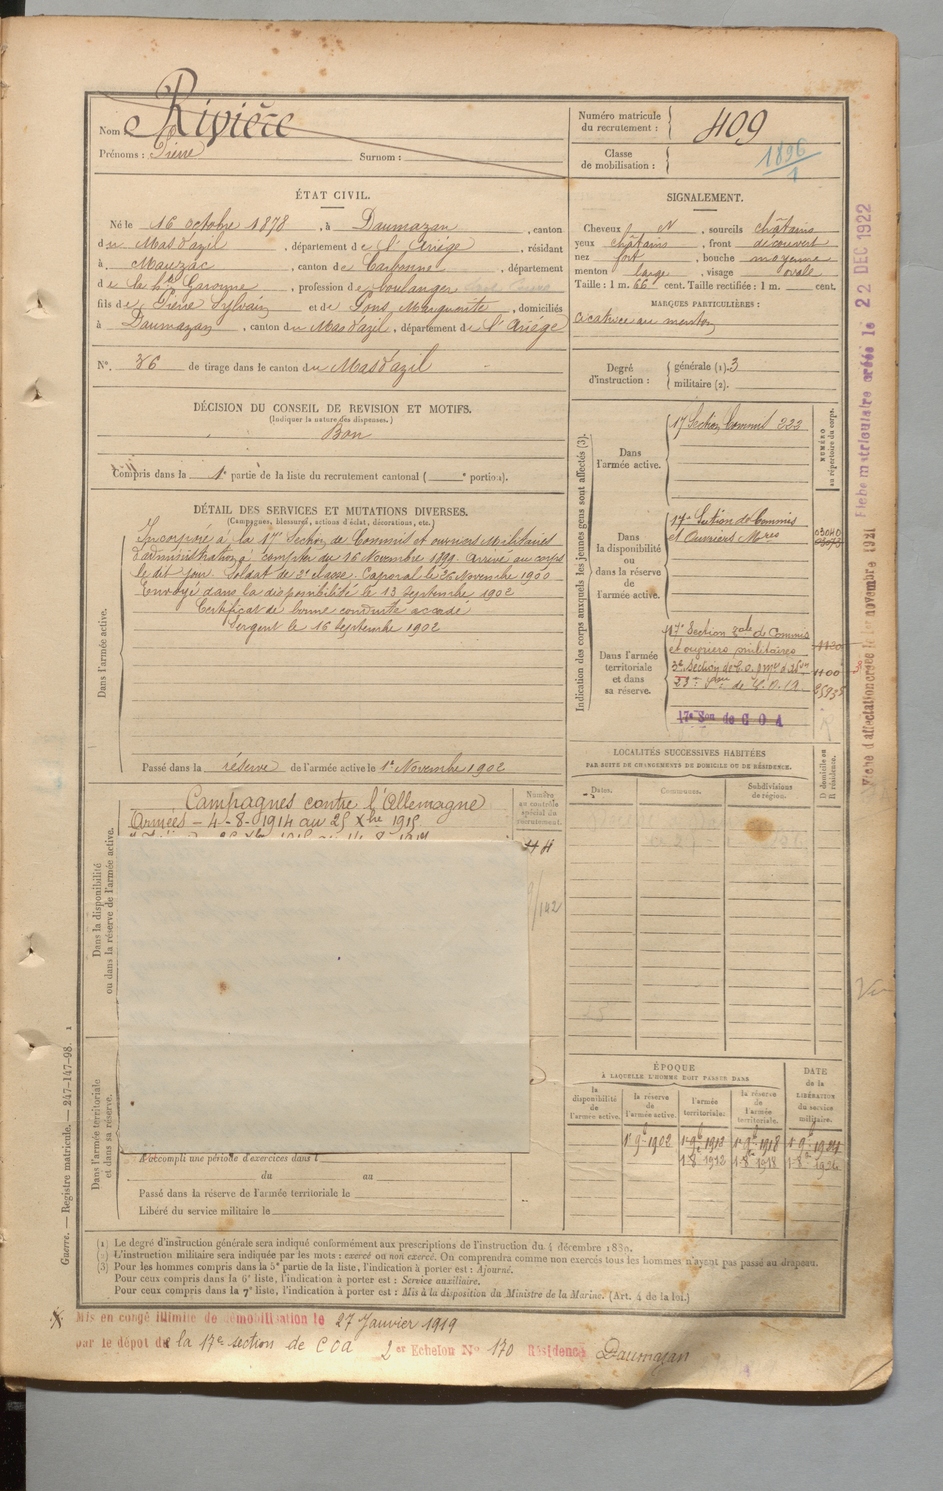 Nom : Rivière
Prénoms : Pierre Surnom :
Numéro matricule du recrutement : 409
Classe de mobilisation : 1896/1
ÉTAT CIVIL.
Né le 16 octobre 1878, à Daumazan, canton
du Mas d'azil, département de l'Ariège, résidant
à Mauzac, canton de Carbonne, département
de la Hte Garonne, profession de boulanger
fils de Pierre Sylvain et de Pons Marguerite, domiciliés
à Daumazan, canton du Mas d'azil, département de l'Ariège
N°. 36 de tirage dans le canton du Mas d'azil
SIGNALEMENT.
Cheveux N, sourcils châtains
yeux châtains, front découvert
nez fort, bouche moyenne
menton large, visage ovale
Taille : 1 m. 66 cent. Taille rectifiée : 1 m. cent.
MARQUES PARTICULIÈRES :
cicatrice au menton
Degré d'instruction : générale (1). 3
militaire (2).
DÉCISION DU CONSEIL DE REVISION ET MOTIFS.
(Indiquer la nature des dispenses.)
Bon
Compris dans la 1e partie de la liste du recrutement cantonal ( e portion).
DÉTAIL DES SERVICES ET MUTATIONS DIVERSES.
(Campagnes, blessures, actions d'éclat, décorations, etc.)
Dans l'armée active.
Incorporé à la 17e Section de Commis et ouvriers Militaires
d'administration à compter du 16 Novembre 1899. Arrivé au corps
le dit jour. Soldat de 2e classe. Caporal le 26 Novembre 1900
Envoyé dans la disponibilité le 13 Septembre 1902
Certificat de bonne conduite accordé
Sergent le 16 Septembre 1902
Passé dans la réserve de l'armée active le 1er Novembre 1902
Indication des corps auxquels les jeunes gens sont affectés (3).
NUMÉRO au répertoire du corps.
Dans l'armée active.
17 Section Commis 222
Dans la disponibilité ou dans la réserve de l'armée active.
17e Section de Commis
et Ouvriers Mres
Dans l'armée territoriale et dans sa réserve.
17e Section Tale de Commis
et ouvriers militaires
1100
17e Son de C O A
Fiche matriculaire créée le 22 DEC 1922
novembre 1921
LOCALITÉS SUCCESSIVES HABITÉES
PAR SUITE DE CHANGEMENTS DE DOMICILE OU DE RÉSIDENCE.
Dates. Communes. Subdivisions de région. D domicile ou R résidence.
Dans la disponibilité ou dans la réserve de l'armée active.
Numéro au contrôle spécial du recrutement.
Campagnes contre l'Allemagne
Armées - 4-8-1914 au 25 Xbre 1915
142
Dans l'armée territoriale et dans sa réserve.
A accompli une période d'exercices dans l
du au
Passé dans la réserve de l'armée territoriale le
Libéré du service militaire le
ÉPOQUE
À LAQUELLE L'HOMME DOIT PASSER DANS
la disponibilité de l'armée active. la réserve de l'armée active. l'armée territoriale. la réserve de l'armée territoriale. DATE de la LIBÉRATION du service militaire.
1r 9b 1902 1r 9b 1912 1r 9b 1918 1r 9b 1924
1-8 1912 1-8 1918 1-8 1924
(1) Le degré d'instruction générale sera indiqué conformément aux prescriptions de l'instruction du 4 décembre 1889.
(2) L'instruction militaire sera indiquée par les mots : exercé ou non exercé. On comprendra comme non exercés tous les hommes n'ayant pas passé au drapeau.
(3) Pour les hommes compris dans la 5e partie de la liste, l'indication à porter est : Ajourné.
Pour ceux compris dans la 6e liste, l'indication à porter est : Service auxiliaire.
Pour ceux compris dans la 7e liste, l'indication à porter est : Mis à la disposition du Ministre de la Marine. (Art. 4 de la loi.)
Guerre. — Registre matricule. — 247-147-98. 1
Mis en congé illimité de démobilisation le 27 Janvier 1919
par le dépôt de la 17e section de COA 2er Echelon N° 170 Résidence Daumazan